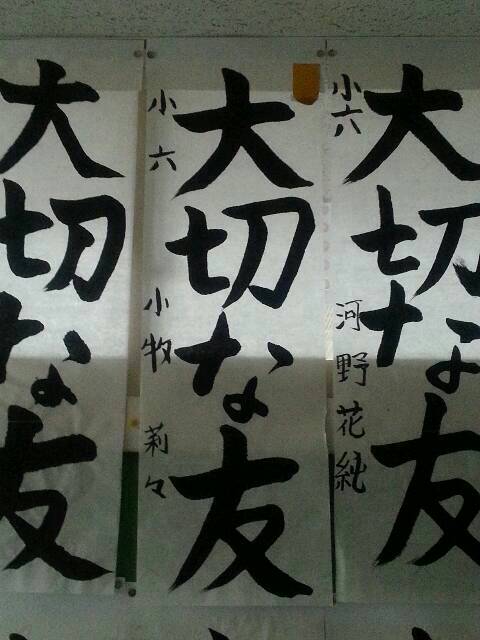 大切な友
小六 河野花純
大切な友
小六 小牧莉々
大切な友